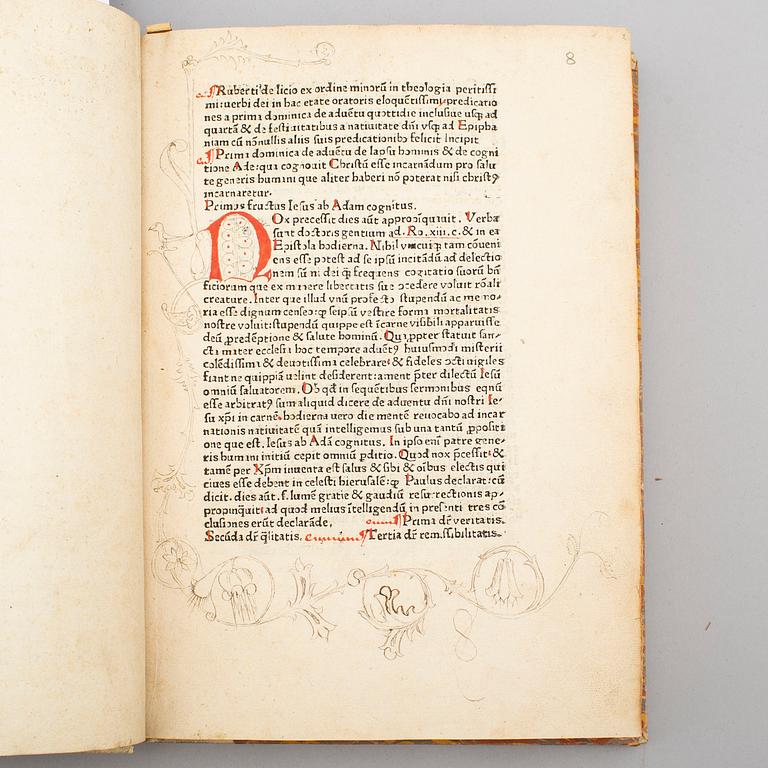 8
¶Ruberti de licio ex ordine minorū in theologia peritissi
mi: uerbi dei in hac etate oratoris eloquētissimi predicatio
nes a prima dominica de aduētu quottidie inclusiue usqȝ ad
quartā & de festiuitatibus a natiuitate dn̄i usqȝ ad Epipha
niam cū nōnullis aliis suis predicationibȝ felicit̄ Incipit
¶Prima dominica de aduētu de lapsu hominis & de cogni
tione Ade: qua cognouit Christū esse incarnādum pro salu
te generis humani que aliter haberi nō poterat nisi christꝰ
incarnaretur.
Primus fructus Iesus ab Adam cognitus.
NOx precessit dies aūt appropīquauit. Verba
sunt doctoris gentium ad. Ro. xiii. c. & in ea
Epistola hodierna. Nihil vnicuiqȝ tam conueni
ens esse potest ad se ipsū incitādū ad delectio
nem sūmi dei qȝ frequens cogitatio suorū bn̄
ficiorum que ex munere libertatis sue procedere voluit rōnali
creature. Inter que illud vnū profecto stupendū ac memo-
ria esse dignum censeo: qȝ seipsū vestire forma mortalitatis
nostre voluit: stupendū quippe est īcarne visibili apparuisse
deū predēptione & salute hominū. Quapropter statuit san-
cta mater ecclesia hoc tempore aduētꝰ huiusmodi misterii
colēdissimi & deuotissimi celebrare: & fideles octi uigiles
fiant ne quippiā uelint desiderent: ament preter dilectū Iesū
omniū saluatorem. Ob qd̄ in sequētibus sermonibus equū
esse arbitratꝰ sum aliquid dicere de aduentu dn̄i nostri Ie-
su xp̄i in carnē. hodierna uero die mentē reuocabo ad incar
nationis natiuitatē quā intelligemus sub una tantū propositi
one que est. Iesus ab Adā cognitus. In ipso enī patre gene-
ris humani initiū cepit omniū perditio. Quod nox p̄cessit: &
tamē per Xp̄m inuenta est salus & sibi & oībus electis qui
ciues esse debent in celesti hierusalē: qȝ Paulus declarat: cū
dicit. dies aūt. s. lumē gratie & gaudiū resurrectionis ap-
propinquit: ad quod melius ītelligendū in presenti tres cō
clusiones erūt declarāde, ¶Prima dr̄ veritatis.
Secūda dr̄ q̄litatis. ¶Tertia dr̄ remissibilitatis.